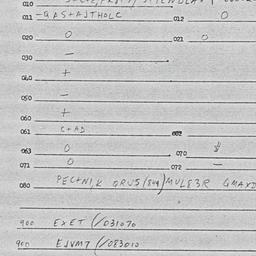 010
011 -GAS+AJTHOLC 012 0
020 0 021 0
030 -
040 +
050 -
060 +
061 C+AD 062
063 0 070 $
071 0 072 -
080 PECTNIK GRUS(844)MULE3R GMAXD
900 EXET (/031070
900 EJVM7 (/083010